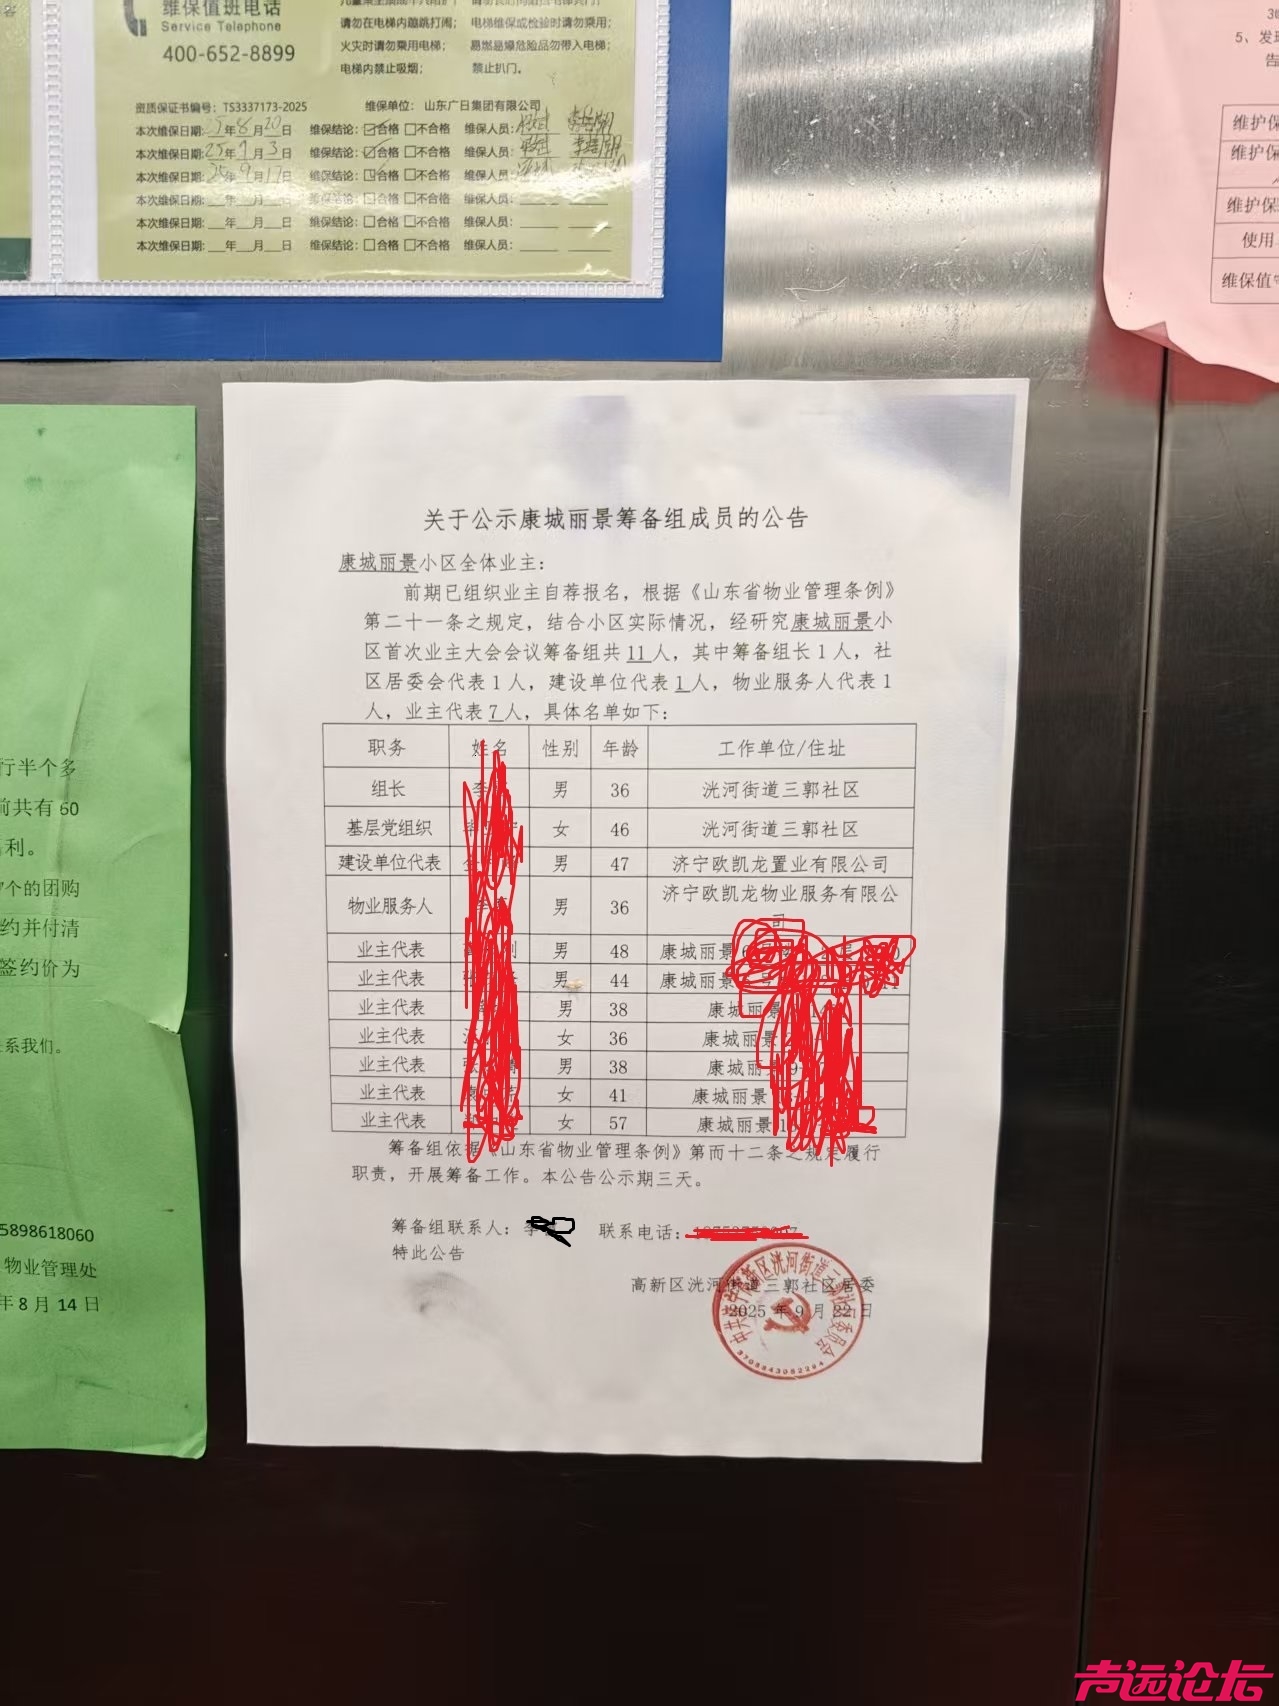 维保值班电话
Service Telephone
400-652-8899
请勿在电梯内蹦跳打闹; 电梯维保或检验时请勿乘用;
火灾时请勿乘用电梯; 易燃易爆危险品勿带入电梯;
电梯内禁止吸烟; 禁止扒门。
资质保证书编号: TS3337173-2025 维保单位: 山东广日集团有限公司
本次维保日期: 25年8月20日 维保结论: 合格 不合格 维保人员:
本次维保日期: 25年9月3日 维保结论: 合格 不合格 维保人员:
本次维保日期: 25年9月17日 维保结论: 合格 不合格 维保人员:
本次维保日期: 年 月 日 维保结论: 合格 不合格 维保人员:
本次维保日期: 年 月 日 维保结论: 合格 不合格 维保人员:
本次维保日期: 年 月 日 维保结论: 合格 不合格 维保人员:
5、发现
告
维护保
维护保
维护保
使用
维保值
行半个多
前共有 60
利。
个的团购
约并付清
签约价为
系我们。
5898618060
物业管理处
年 8 月 14 日
关于公示康城丽景筹备组成员的公告
康城丽景小区全体业主:
前期已组织业主自荐报名,根据《山东省物业管理条例》
第二十一条之规定,结合小区实际情况,经研究康城丽景小
区首次业主大会会议筹备组共 11 人,其中筹备组长 1 人,社
区居委会代表 1 人,建设单位代表 1 人,物业服务人代表 1
人,业主代表 7 人,具体名单如下:
职务 姓名 性别 年龄 工作单位/住址
组长 李 男 36 洸河街道三郭社区
基层党组织 女 46 洸河街道三郭社区
建设单位代表 男 47 济宁欧凯龙置业有限公司
物业服务人 男 36 济宁欧凯龙物业服务有限公
司
业主代表 男 48 康城丽景
业主代表 张 男 44 康城丽景
业主代表 男 38 康城丽景
业主代表 女 36 康城丽景
业主代表 张 男 38 康城丽
业主代表 女 41 康城丽景
业主代表 女 57 康城丽景
筹备组依据《山东省物业管理条例》第而十二条之规定履行
职责,开展筹备工作。本公告公示期三天。
筹备组联系人: 李 联系电话:
特此公告
高新区洸河街道三郭社区居委
2025 年 9 月 22 日
声远论坛